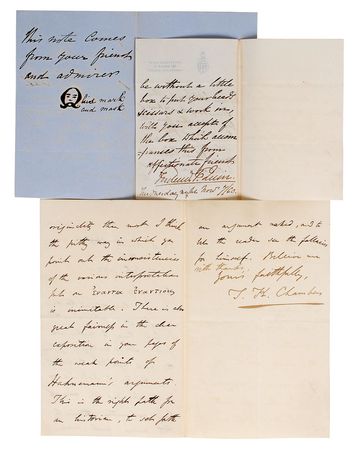 This note comes
from your friends
and admirers
Quid mark
and mark
be without a little
box to put your beads
scissors & work in,
will you accept of
the box which accom-
panies this from
affectionate friend
Frederic
Thursday night Nov
originality than most I think
the pretty way in which you
points out the inconsistencies
of the various interpretations
put on
is inimitable. There is also
great fairness in the clear
exposition in your pages of
the weak points of
Hahnemann's arguments
This is the right path for
an historian, to set forth
an argument naked, and to
let the reader see the fallacies
for himself. Believe me
with thanks
Yours faithfully,
T. K. Chambers